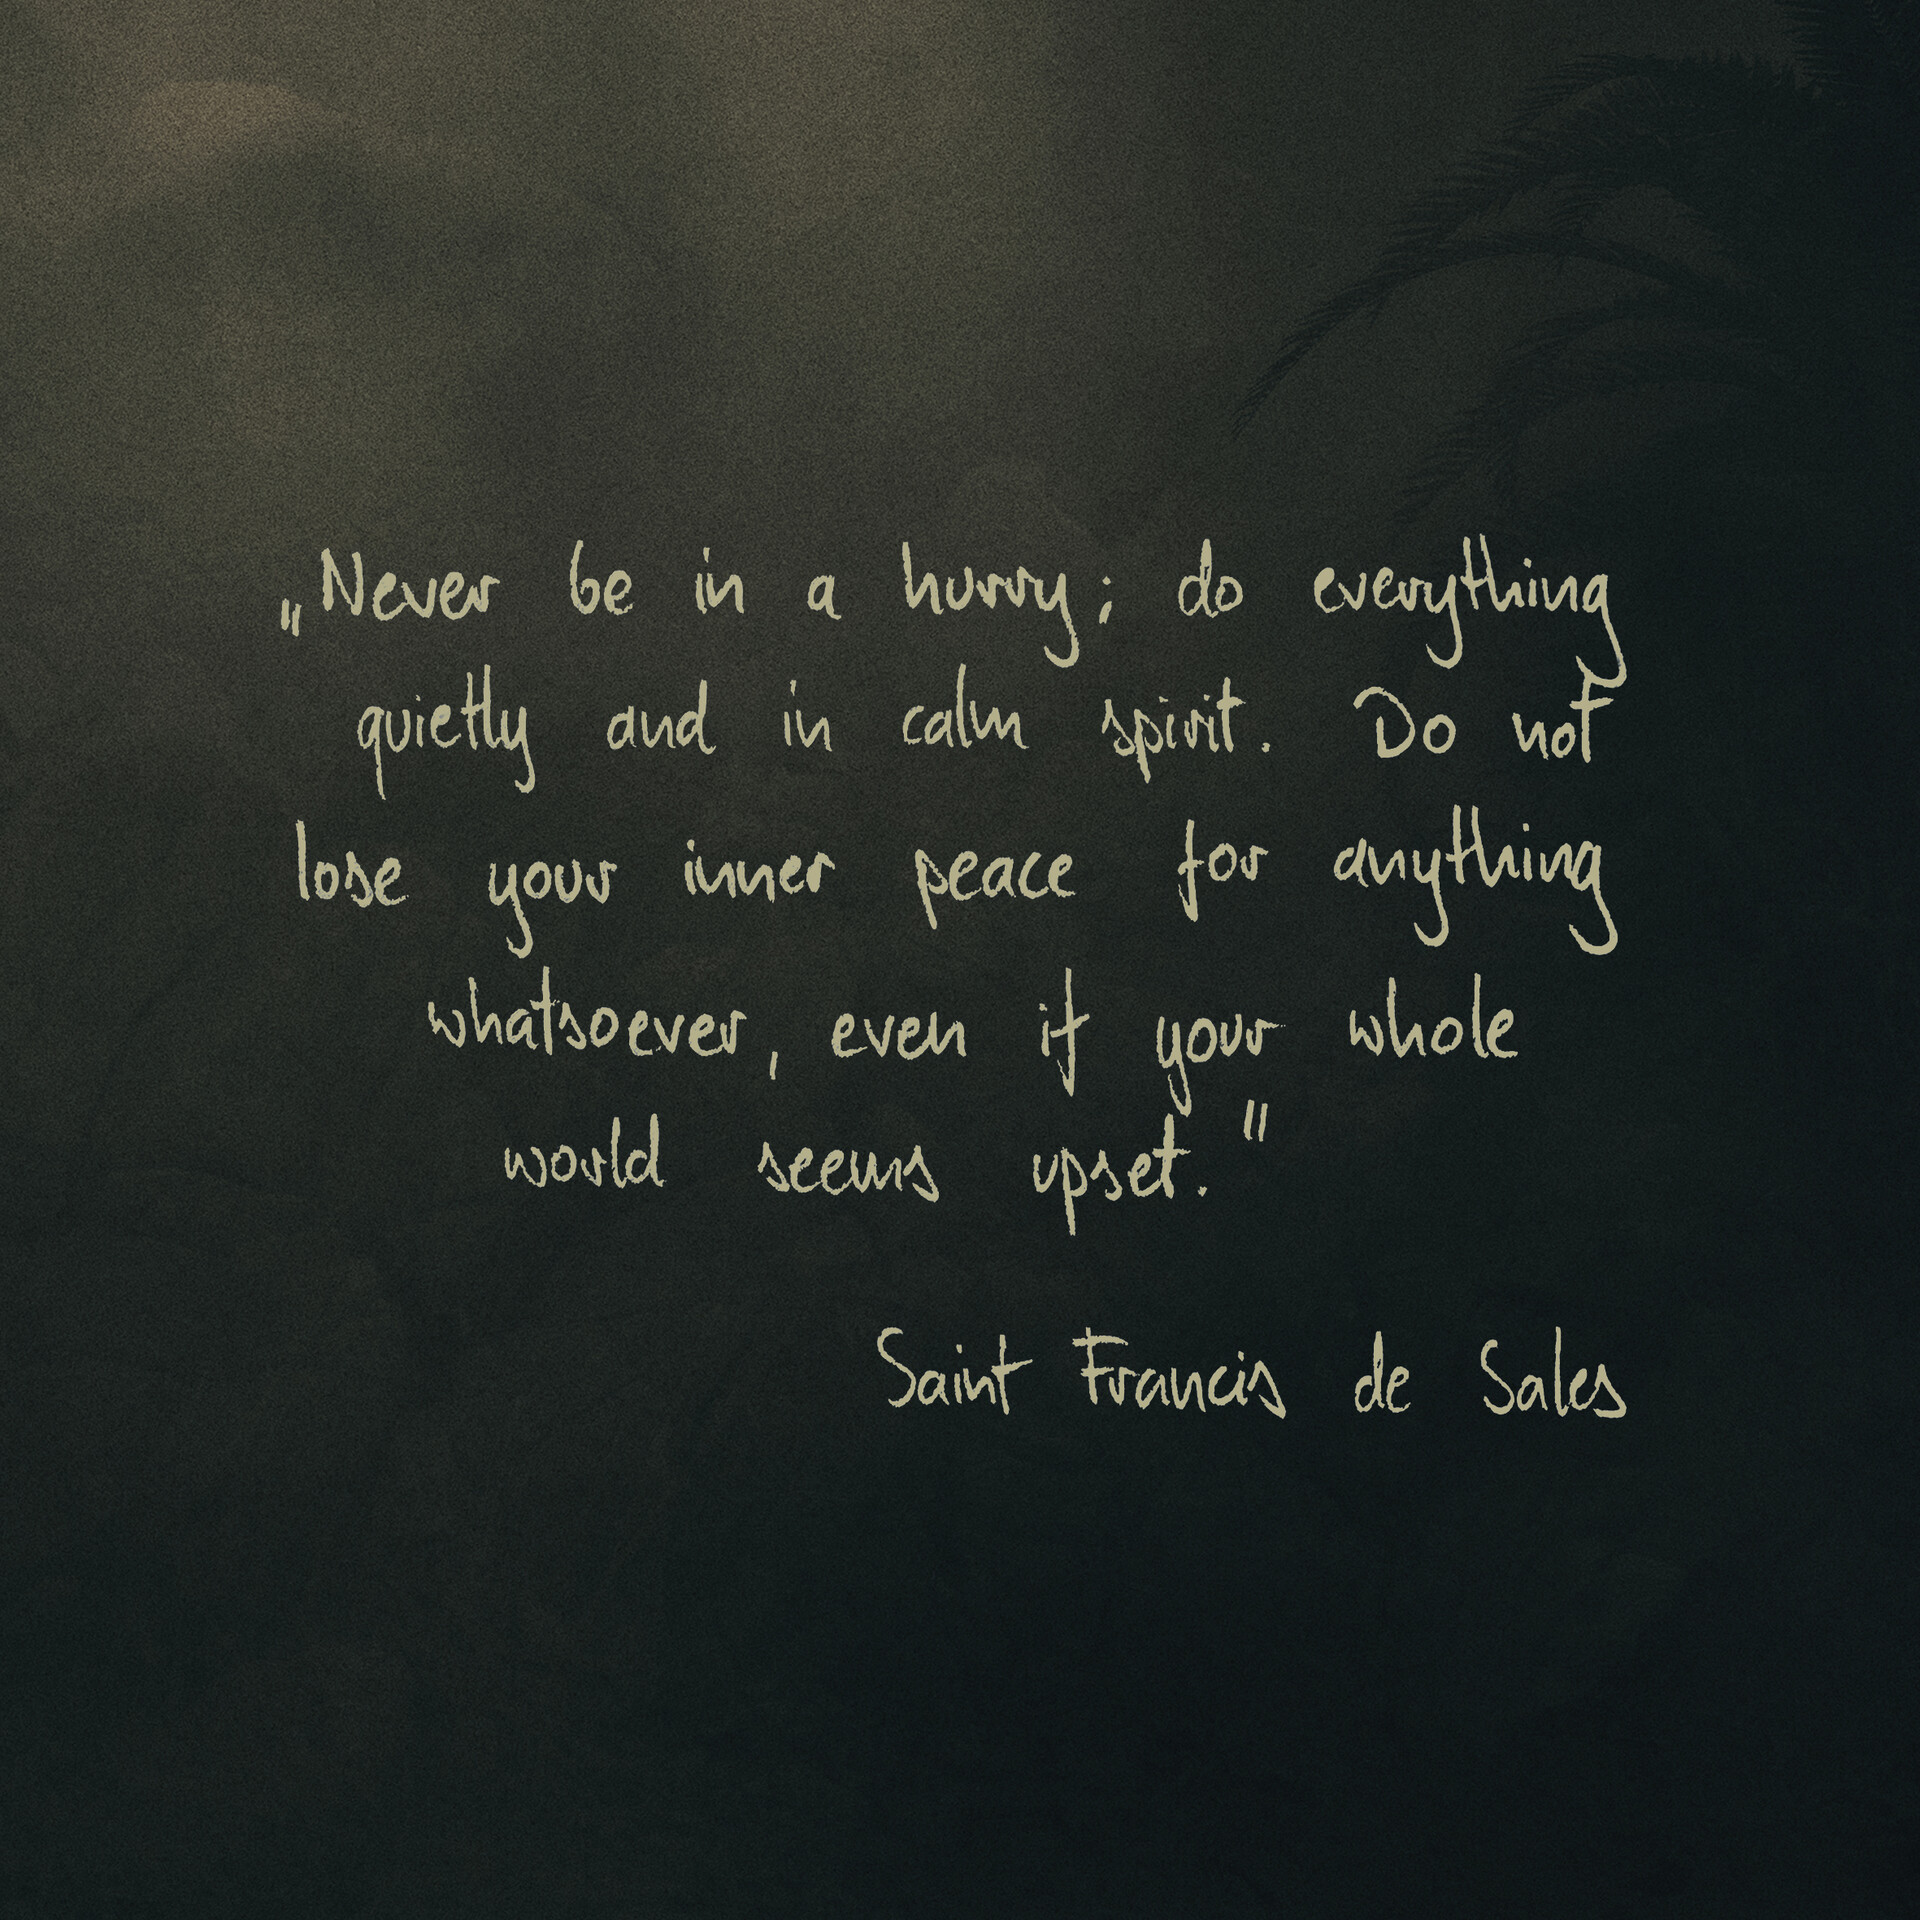 „Never be in a hurry; do everything
quietly and in calm spirit. Do not
lose your inner peace for anything
whatsoever, even if your whole
world seems upset."
Saint Francis de Sales